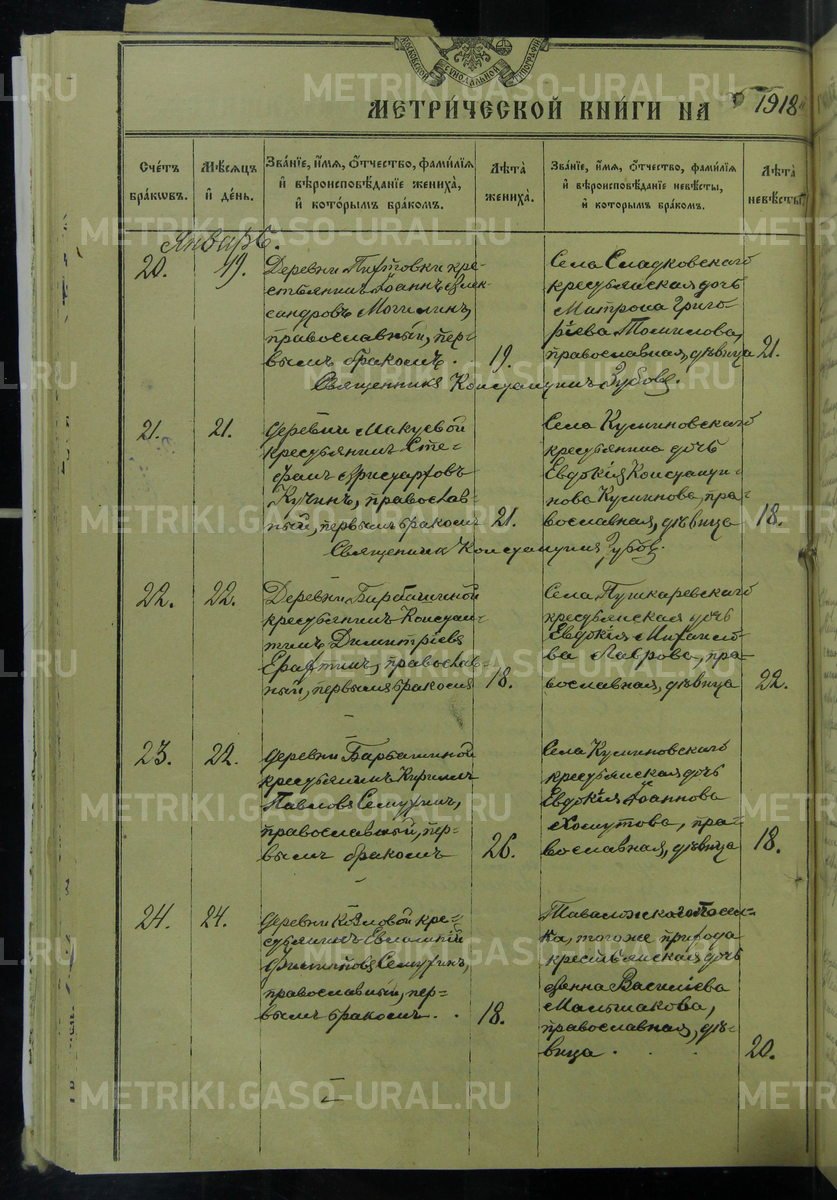 МОСКОВСКОЙ СѴНОДАЛЬНОЙ ТИПОГРАФІИ
МЕТРИ́ЧЕСКОЙ КНИ́ГИ НА 1918
Сче́тъ бра́кѡвъ.
Мѣ́сѧцъ и҆ де́нь.
Зва́нїе, и҆́мѧ, ѻ҆́тчество, фамѝлїѧ и҆ вѣроисповѣ́данїе жениха̀, и҆ кото́рымъ бра́комъ.
Лѣ̑та жениха̀.
Зва́нїе, и҆́мѧ, ѻ҆́тчество, фамѝлїѧ и҆ вѣроисповѣ́данїе невѣ́сты, и҆ которымъ бра́комъ.
Лѣ̑та невѣ́сты.
Январь.
20.
19.
Деревни Пихтовки кре-
стьянинъ Іоаннъ Алек-
сандровъ Могилинъ,
православный, пер-
вымъ бракомъ.
19.
Села Сладковскаго
крестьянская дочь
Матрона Григо-
ріева Томилова,
православная, дѣвица
21.
Священникъ Константинъ Зубовъ.
21.
21.
Деревни Макуевой
крестьянинъ Сте-
фанъ Аристарховъ
Кучинъ, православ-
ный, первымъ бракомъ
21.
Села Куминовскаго
крестьянина дочь
Евдокія Константи-
нова Куминова, пра-
вославная, дѣвица
18.
Священникъ Константинъ Зубовъ.
22.
22.
Деревни Барбашиной
крестьянинъ Констан-
тинъ Димитріевъ
Ерахтинъ, православ-
ный, первымъ бракомъ
18.
Села Пушкаревскаго
крестьянская дочь
Евдокія Михаило-
ва Лаврова, пра-
вославная, дѣвица
22.
23.
22.
Деревни Барбашиной
крестьянинъ Кириллъ
Павловъ Семухинъ,
православный, пер-
вымъ бракомъ
26.
Села Куминовскаго
крестьянская дочь
Евдокія Іоаннова
Хомутова, пра-
вославная, дѣвица
18.
24.
24.
Деревни Козловой кре-
стьянинъ Евлампій
Филипповъ Семухинъ,
православный, пер-
вымъ бракомъ.
18.
Таволожскаго посел-
ка, того же прихода
крестьянская дочь
Анна Василіева
Малышакова,
православная, дѣ-
вица
20.
METRIKI.GASO-URAL.RU